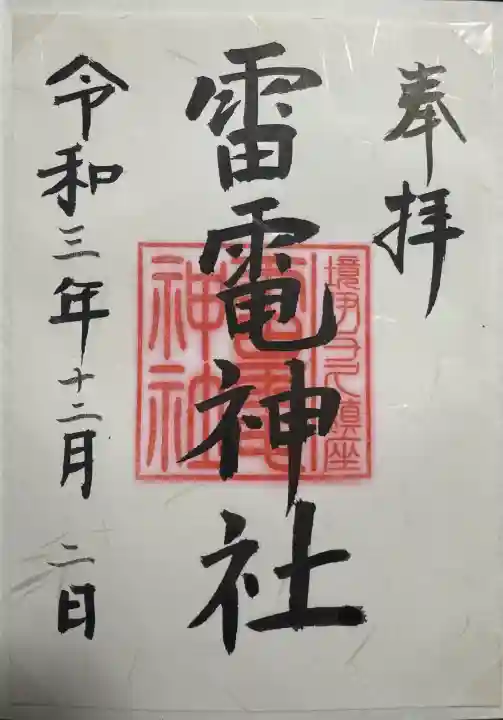 奉拝
雷電神社
令和三年十二月二日
境伊勢崎鎮座
雷電
神社